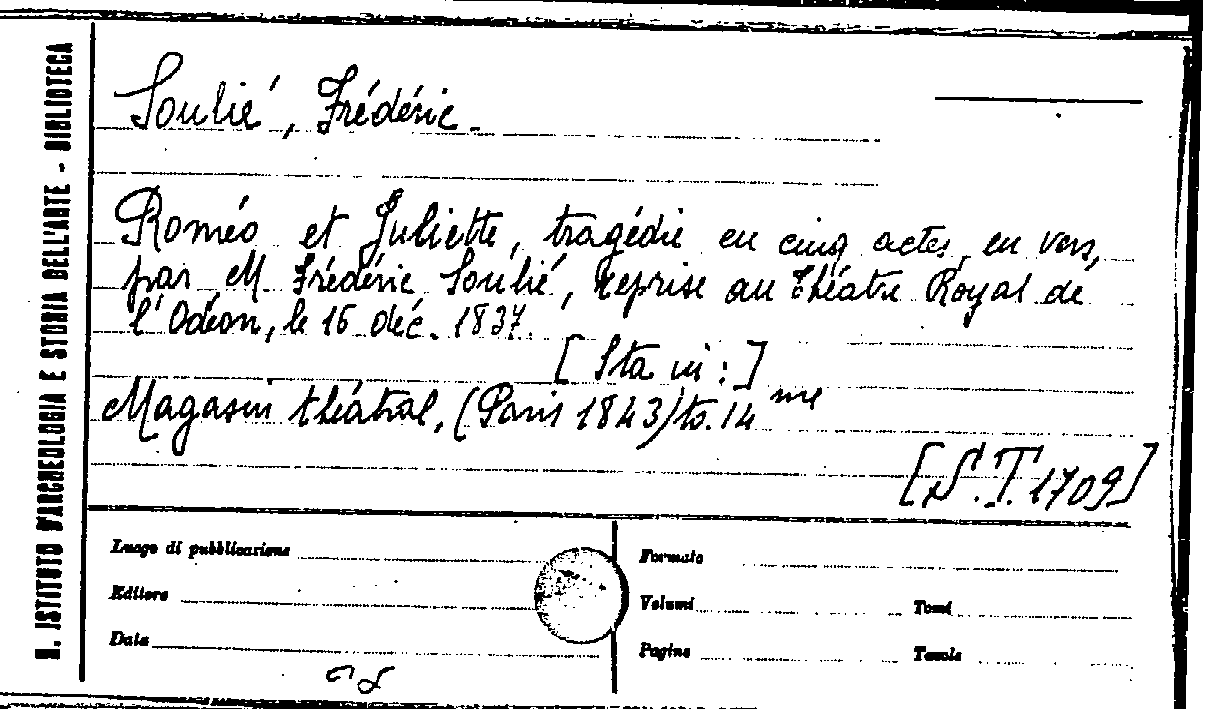 R. ISTITUTO D'ARCHEOLOGIA E STORIA DELL'ARTE - BIBLIOTECA
Soulié, Frédéric.
Roméo et Juliette, tragédie en cinq actes, en vers,
par M Frédéric Soulié, reprise au Théâtre Royal de
l'Odéon, le 16 déc. 1837.
[Sta in:]
Magasin théâtral, (Paris 1843) to. 14me
[S.T. 1709]
Luogo di pubblicazione
Editore
Data
Formato
Volumi Tomi
Pagine Tavole